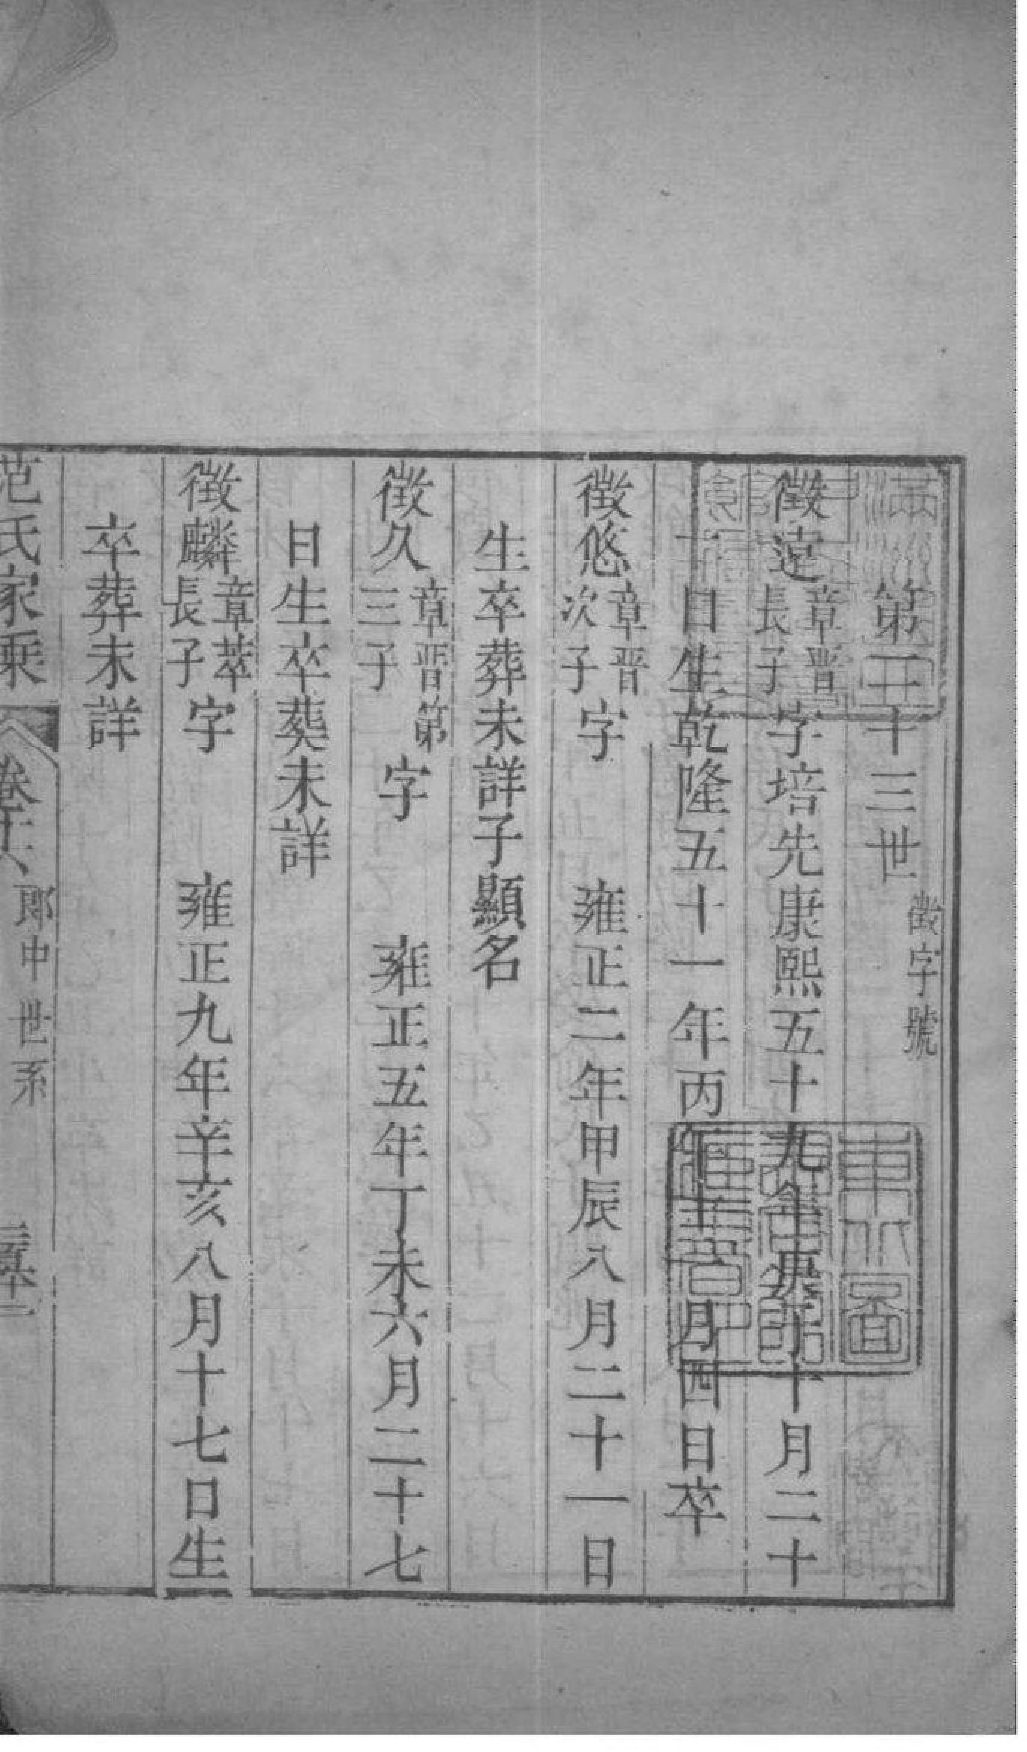 第二十三世 徵字號
徵遠章晉長子字培先康熙五十九年庚子十月二十
一日生乾隆五十一年丙午十月四日卒
徵悠章晉次子字 雍正二年甲辰八月二十一日
生卒葬未詳子顯名
徵久章晉第三子字 雍正五年丁未六月二十七
日生卒葬未詳
徵麟章萃長子字 雍正九年辛亥八月十七日生
卒葬未詳
范氏家乘 卷十六 郎中世系